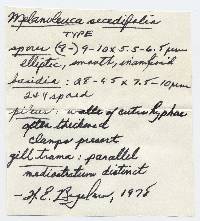 Melanoleuca
TYPE
spores (8-) 9-10 x 5.5-6.5 µm
elliptic, smooth,
basidia: 28-45 x 7.5-10 µm
2 & 4 spored
pileus: walls of cutis hyphae
often thickened
clamps present
gill trama: parallel
mediostratum distinct
- H. E. Bigelow, 1978